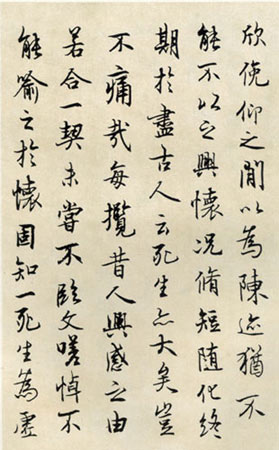 欣俛仰之間以為陳迹猶不
能不以之興懷況脩短随化終
期於盡古人云死生亦大矣豈
不痛哉每攬昔人興感之由
若合一契未嘗不臨文嗟悼不
能喻之於懷固知一死生為虛